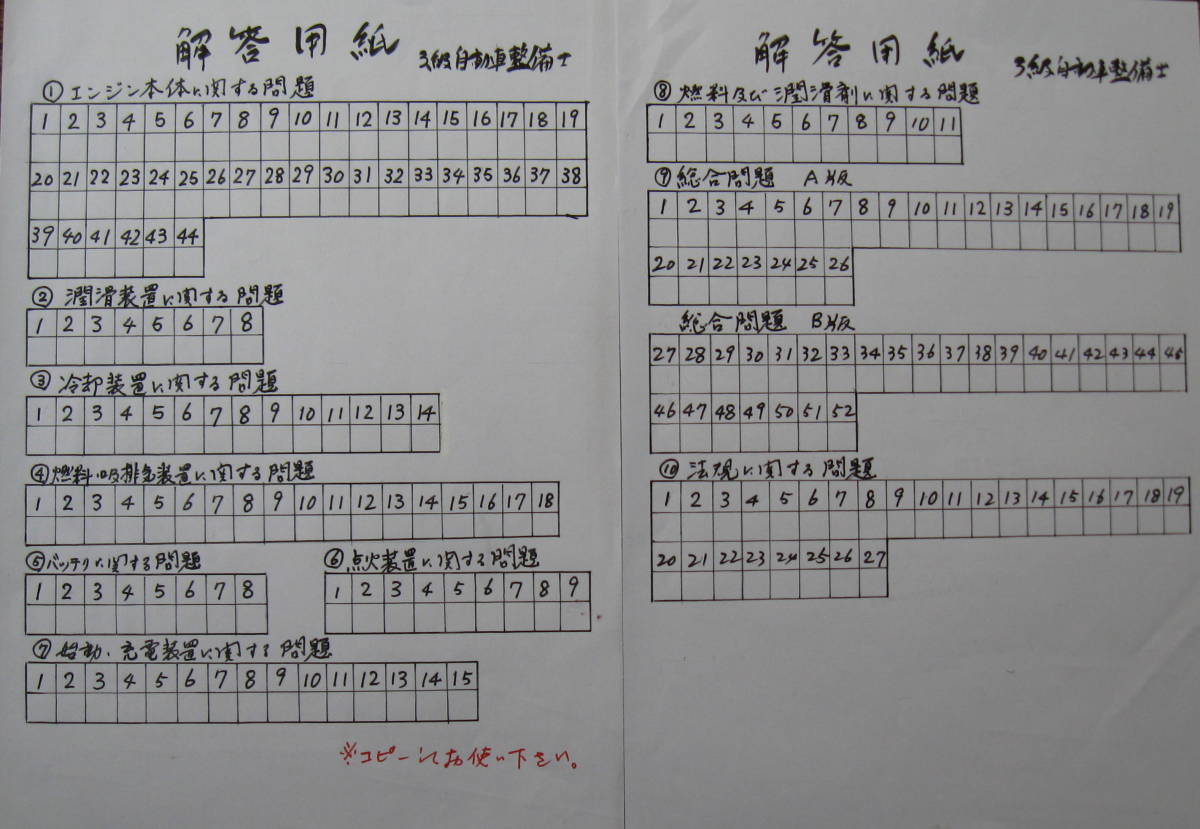 解答用紙 3級自動車整備士
① エンジン本体に関する問題
1 2 3 4 5 6 7 8 9 10 11 12 13 14 15 16 17 18 19
20 21 22 23 24 25 26 27 28 29 30 31 32 33 34 35 36 37 38
39 40 41 42 43 44
② 潤滑装置に関する問題
1 2 3 4 5 6 7 8
③ 冷却装置に関する問題
1 2 3 4 5 6 7 8 9 10 11 12 13 14
④ 燃料・吸排気装置に関する問題
1 2 3 4 5 6 7 8 9 10 11 12 13 14 15 16 17 18
⑤ バッテリに関する問題
1 2 3 4 5 6 7 8
⑥ 点火装置に関する問題
1 2 3 4 5 6 7 8 9
⑦ 始動・充電装置に関する問題
1 2 3 4 5 6 7 8 9 10 11 12 13 14 15
※コピーしてお使い下さい。
解答用紙 3級自動車整備士
⑧ 燃料及び潤滑剤に関する問題
1 2 3 4 5 6 7 8 9 10 11
⑨ 総合問題 A版
1 2 3 4 5 6 7 8 9 10 11 12 13 14 15 16 17 18 19
20 21 22 23 24 25 26
総合問題 B版
27 28 29 30 31 32 33 34 35 36 37 38 39 40 41 42 43 44 45
46 47 48 49 50 51 52
⑩ 法規に関する問題
1 2 3 4 5 6 7 8 9 10 11 12 13 14 15 16 17 18 19
20 21 22 23 24 25 26 27